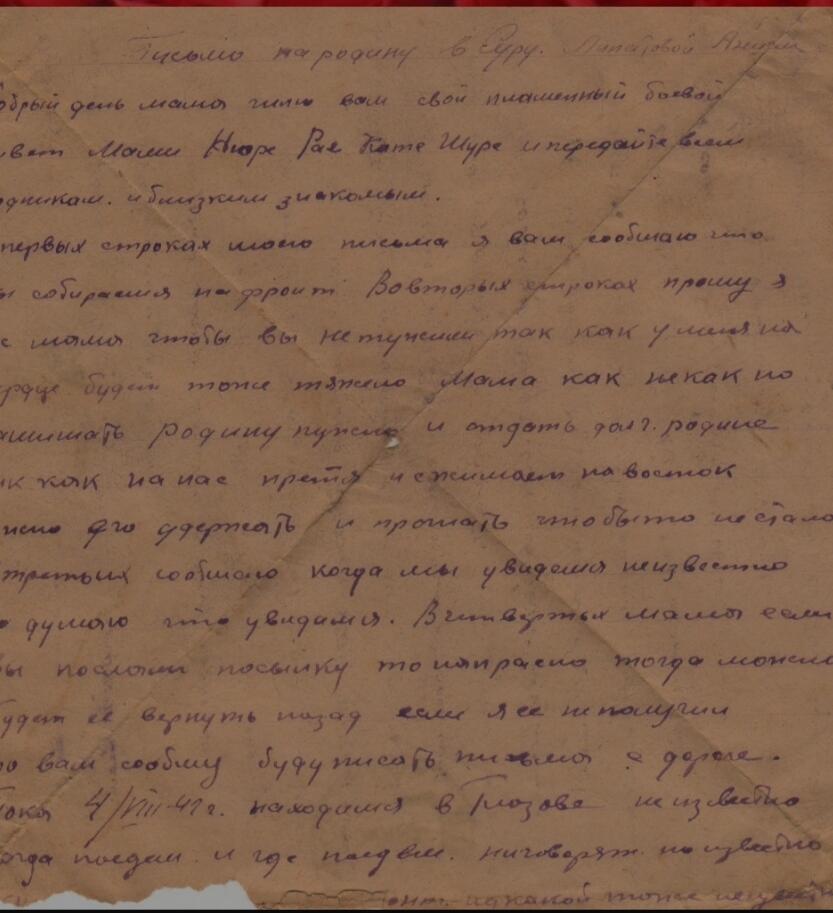 Письмо на родину в Суру. Лапатовой
обрый день мама шлю вам свой пламенный боевой
ивет Мами Нюре Рае Кате Шуре и передайте всем
одникам. и близким знакомым.
первых строках моево письма я вам сообшаю что
ы собираемся на фронт Вовторых строках прошу я
с мама чтобы вы нетужили так как у меня на
ердце будет тоже тяжело Мама как некак но
ашишать родину нужно и отдать долг. родине
ак как на нас прет и сжимает на восток
ужно его удержать и прогнать чтобыто нестало
третьих сообшаю когда мы увидемся неизвестно
о думаю что увидимся. Вчетвертых мама если
вы послали посылку то напрасно тогда можно
будет ее вернуть назад если я ее неполучил
то вам сообшу буду писать письма с дороге.
Пока 4/VIII-41 г. находимся в Глазове неизвестно
огда поедем. и где поедем. ниговорят. но известно
какой тоже